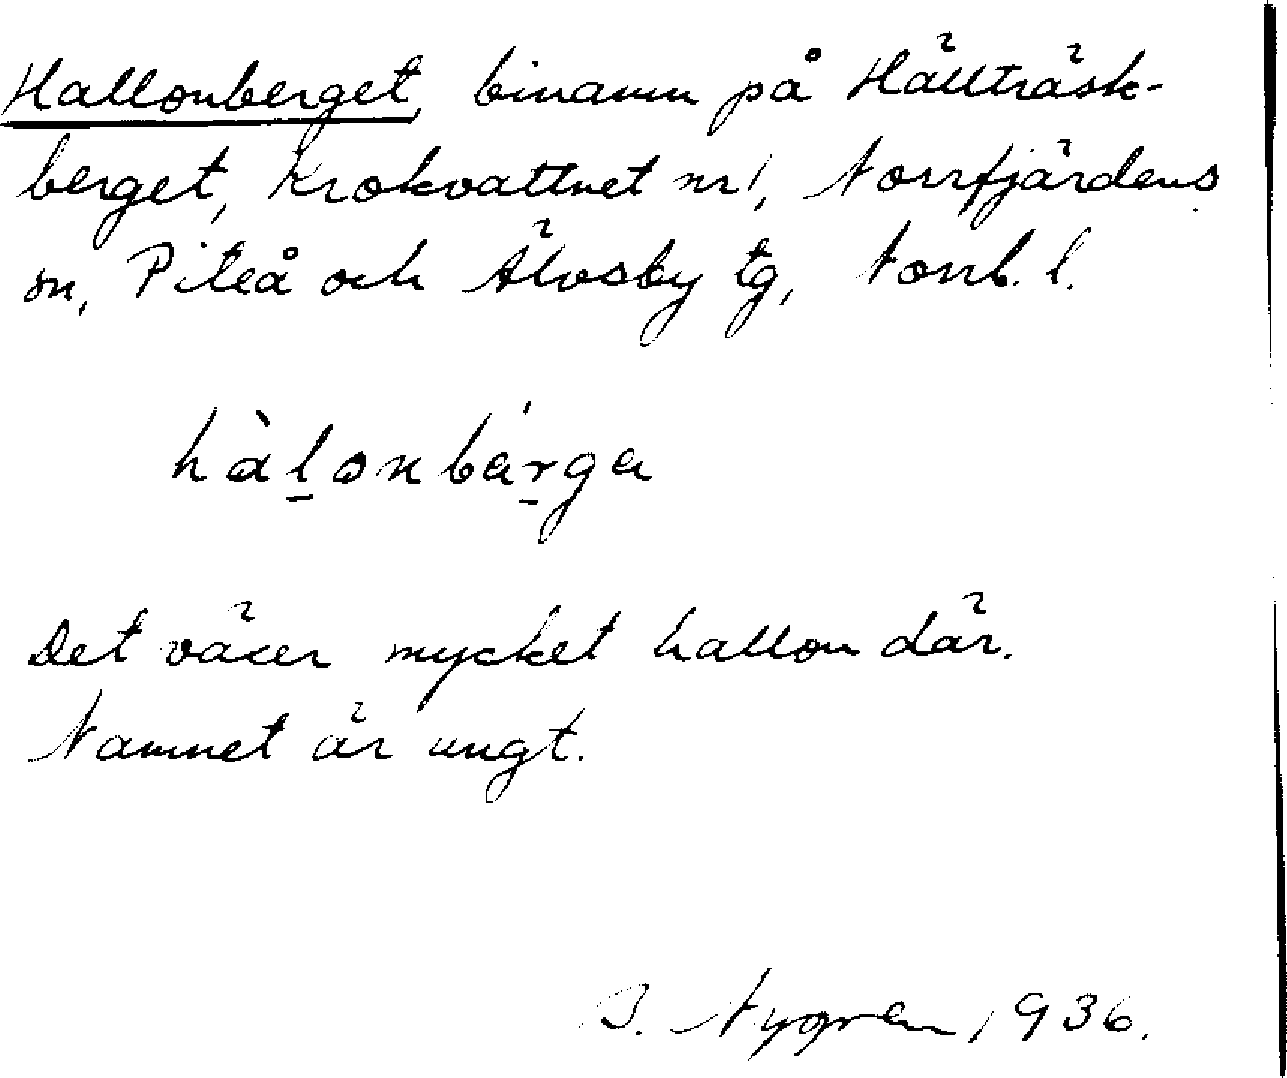 Hallonberget, binamn på Hällträsk-
berget, Krokvattnet nr 1, Norrfjärdens
sn, Piteå och Älvsby tg, Norrb. l.
hàlonbárga
Det växer mycket hallon där.
Namnet är ungt.
J. Nygren 1936.